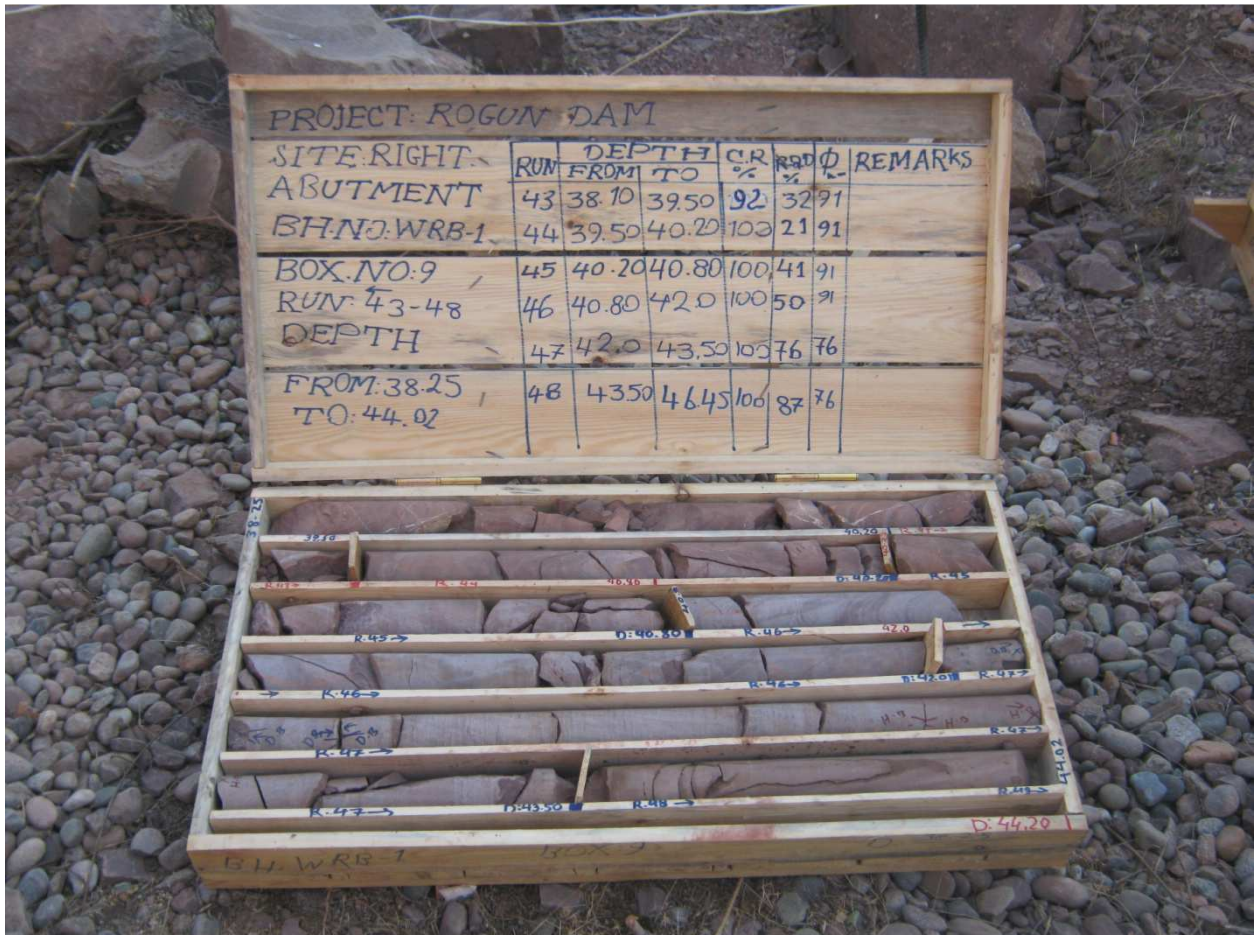 PROJECT: ROGUN DAM
SITE:RIGHT.
ABUTMENT
BH.NO:WRB-1
BOX.NO:9
RUN:43-48
DEPTH
FROM:38.25
TO:44.02
RUN DEPTH FROM TO C.R % RQD % Φ REMARKS
43 38.10 39.50 92 32 91
44 39.50 40.20 100 21 91
45 40.20 40.80 100 41 91
46 40.80 42.0 100 50 91
47 42.0 43.50 100 76 76
48 43.50 46.45 100 87 76
38.25
40.20
R.44 40.80 D:40.20 R.45
R.45→ D:40.80 R.46→ 42.0
→ R.46→ R.46→ D:42.0 R.47→
H.9 H.9
R.47→ R.47→
R.47→ D:43.50 R.48→
44.02
D:44.20
BH.WRB-1 BOX 9